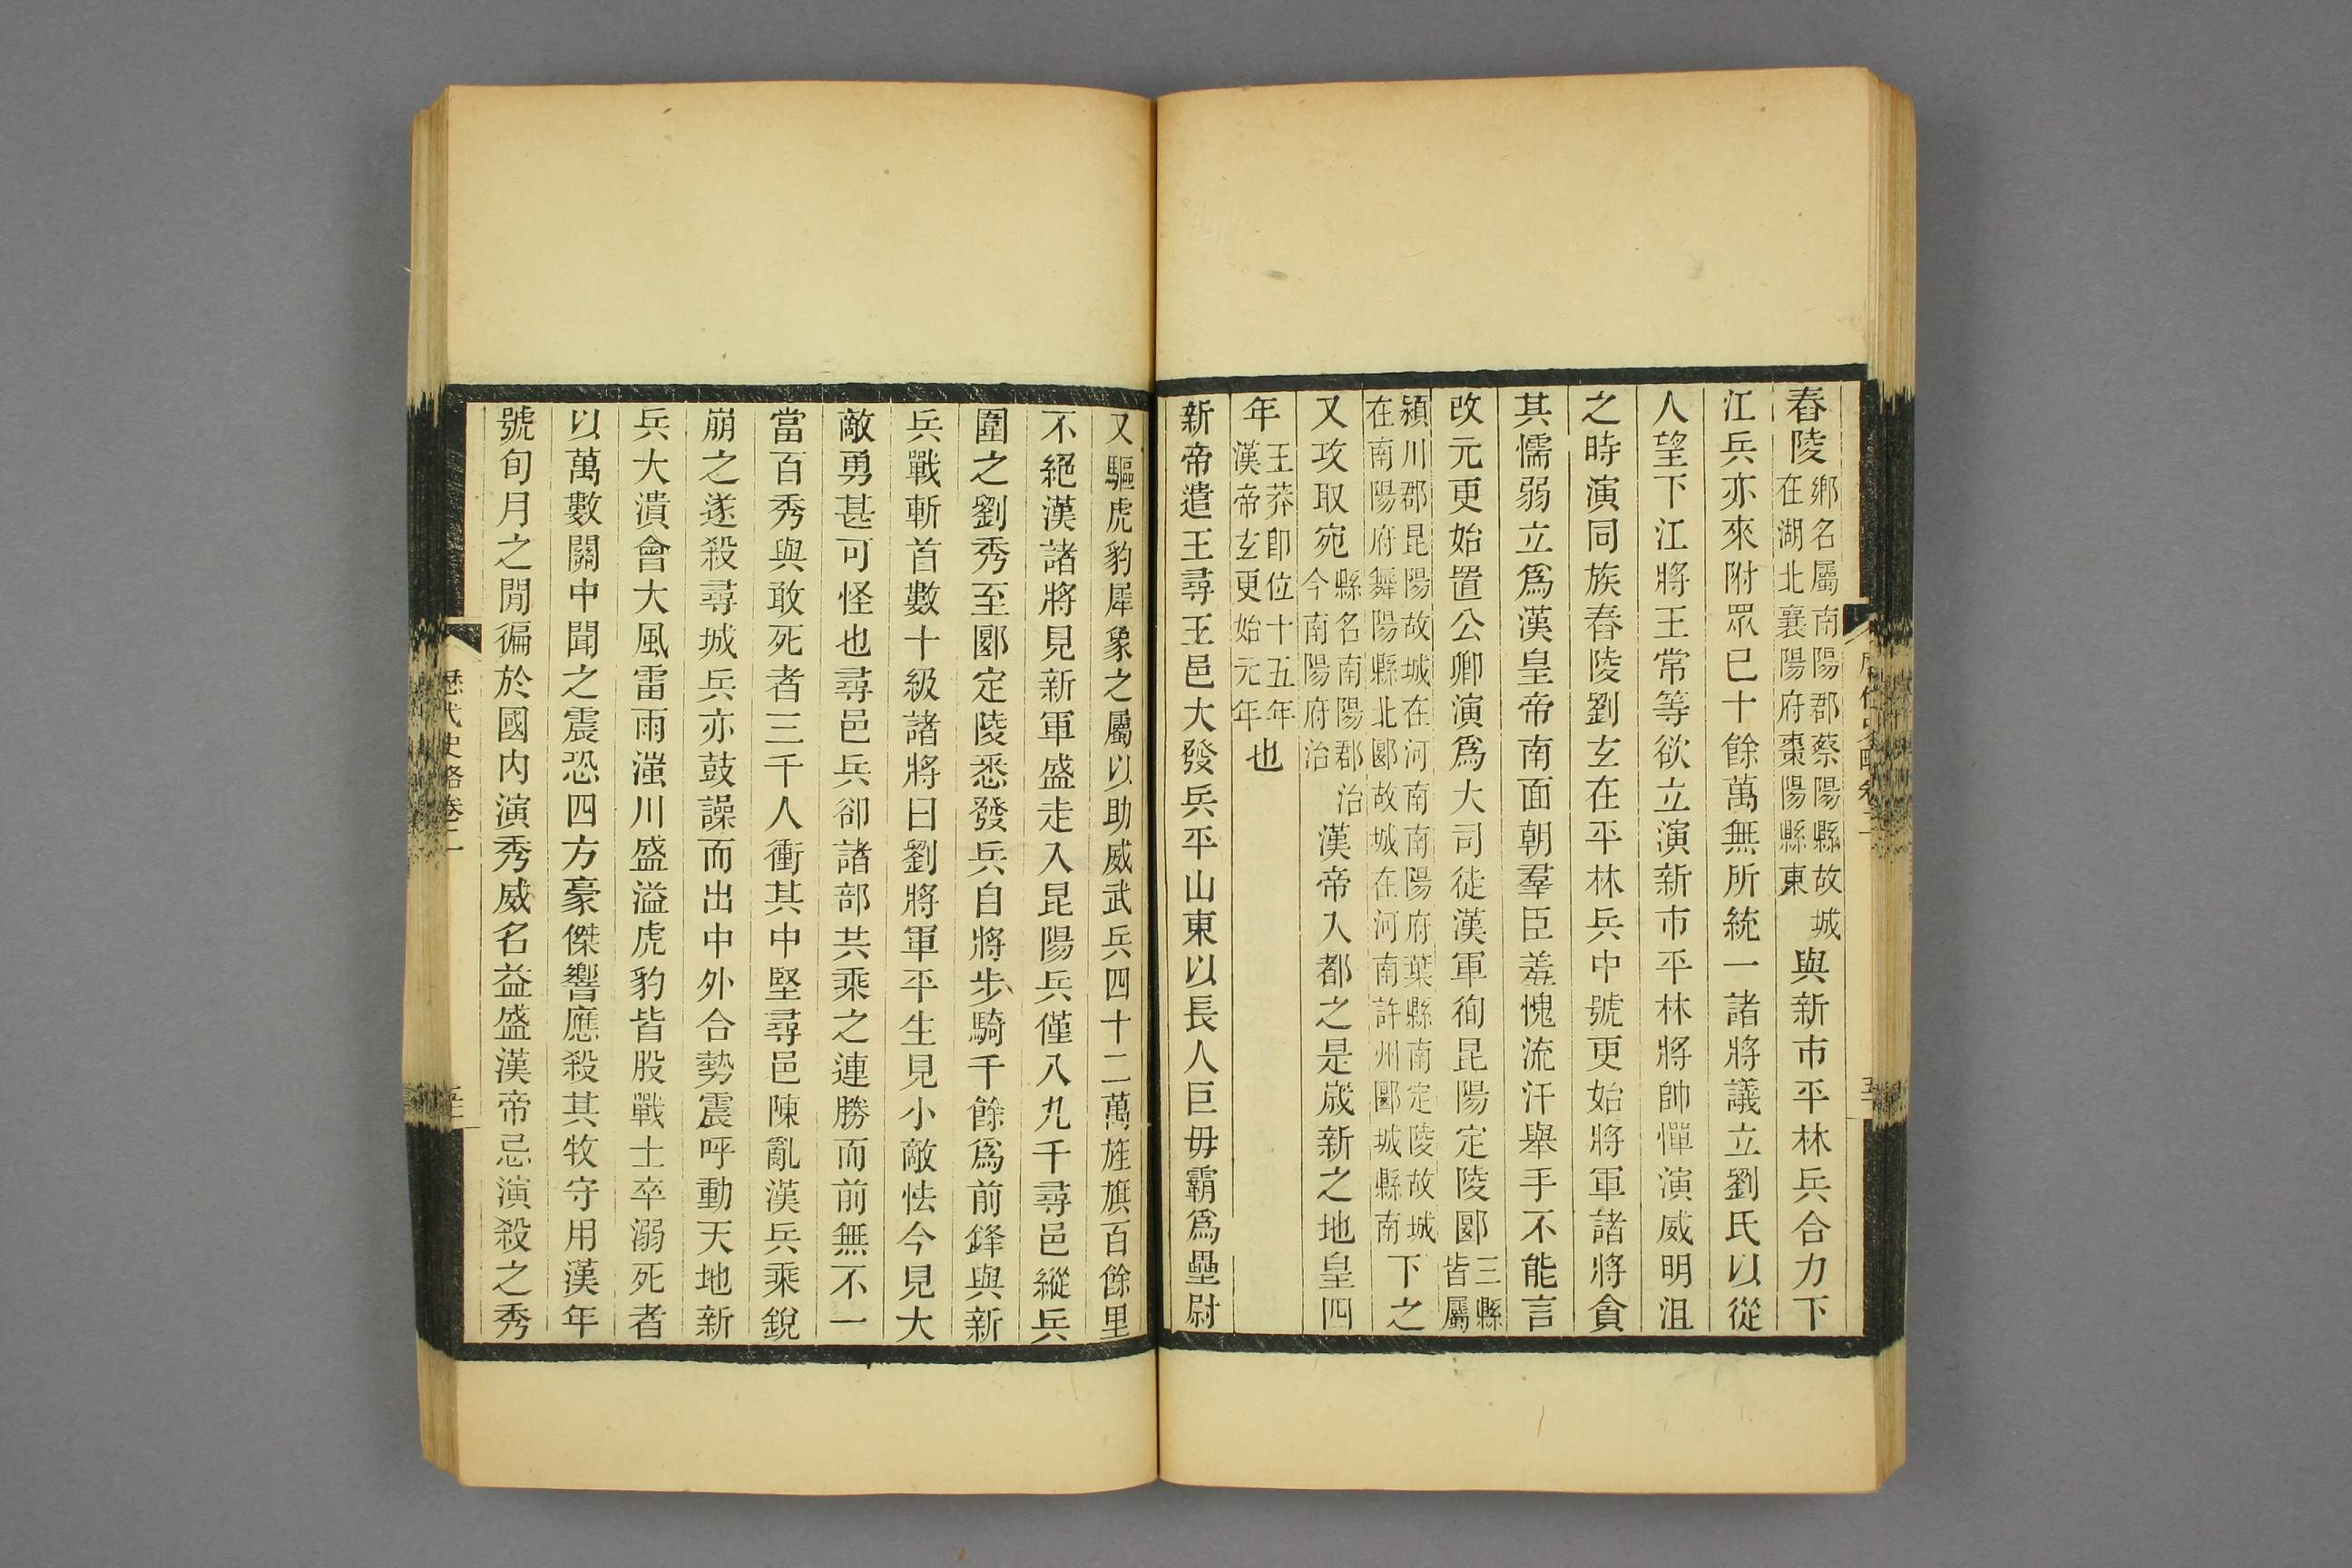 舂陵鄉名屬南陽郡蔡陽縣故城在湖北襄陽府棗陽縣東與新市平林兵合力下
江兵亦來附眾已十餘萬無所統一諸將議立劉氏以從
人望下江將王常等欲立演新市平林將帥憚演威明沮
之時演同族舂陵劉玄在平林兵中號更始將軍諸將貪
其懦弱立爲漢皇帝南面朝羣臣羞愧流汗舉手不能言
改元更始置公卿演爲大司徒漢軍徇昆陽定陵郾三縣皆屬
潁川郡昆陽故城在河南南陽府葉縣南定陵故城在南陽府舞陽縣北郾故城在河南許州郾城縣南下之
又攻取宛縣名南陽郡治今南陽府治漢帝入都之是歲新之地皇四
年王莽即位十五年漢帝玄更始元年也
新帝遣王尋王邑大發兵平山東以長人巨毋霸爲壘尉
又驅虎豹犀象之屬以助威武兵四十二萬旌旗百餘里
不絕漢諸將見新軍盛走入昆陽兵僅八九千尋邑縱兵
圍之劉秀至郾定陵悉發兵自將步騎千餘爲前鋒與新
兵戰斬首數十級諸將曰劉將軍平生見小敵怯今見大
敵勇甚可怪也尋邑兵卻諸部共乘之連勝而前無不一
當百秀與敢死者三千人衝其中堅尋邑陳亂漢兵乘銳
崩之遂殺尋城兵亦鼓譟而出中外合勢震呼動天地新
兵大潰會大風雷雨滍川盛溢虎豹皆股戰士卒溺死者
以萬數關中聞之震恐四方豪傑響應殺其牧守用漢年
號旬月之閒徧於國內演秀威名益盛漢帝忌演殺之秀
歷代史略卷二